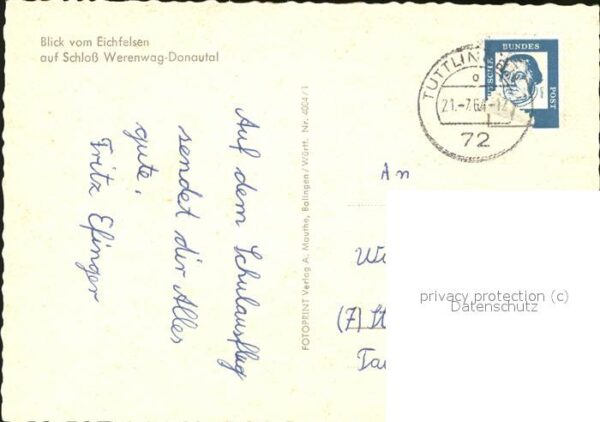 Blick vom Eichfelsen
auf Schloß Werenwag-Donautal
Auf dem Schulausflug
sendet dir Alles
gute,
Fritz Efinger
FOTOPRINT Verlag A. Mauthe, Balingen/Württ. Nr. 4004/1
DEUTSCHE
BUNDES
POST
TUTTLINGEN
21.-7.64-17
72
An
(7) St
privacy protection (c)
Datenschutz